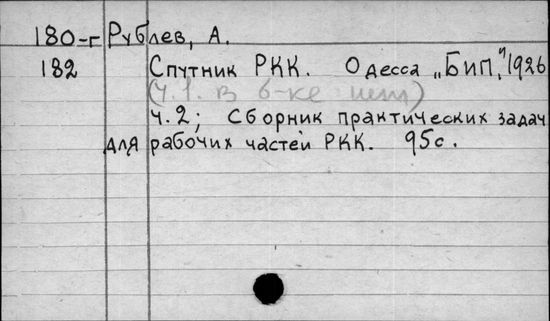 180-г Рублев, А.
182 Спутник РКК. Одесса „БИП", 1926
(ч.1. в б-ке нет)
ч.2; Сборник практических задач
для рабочих частей РКК. 95с.